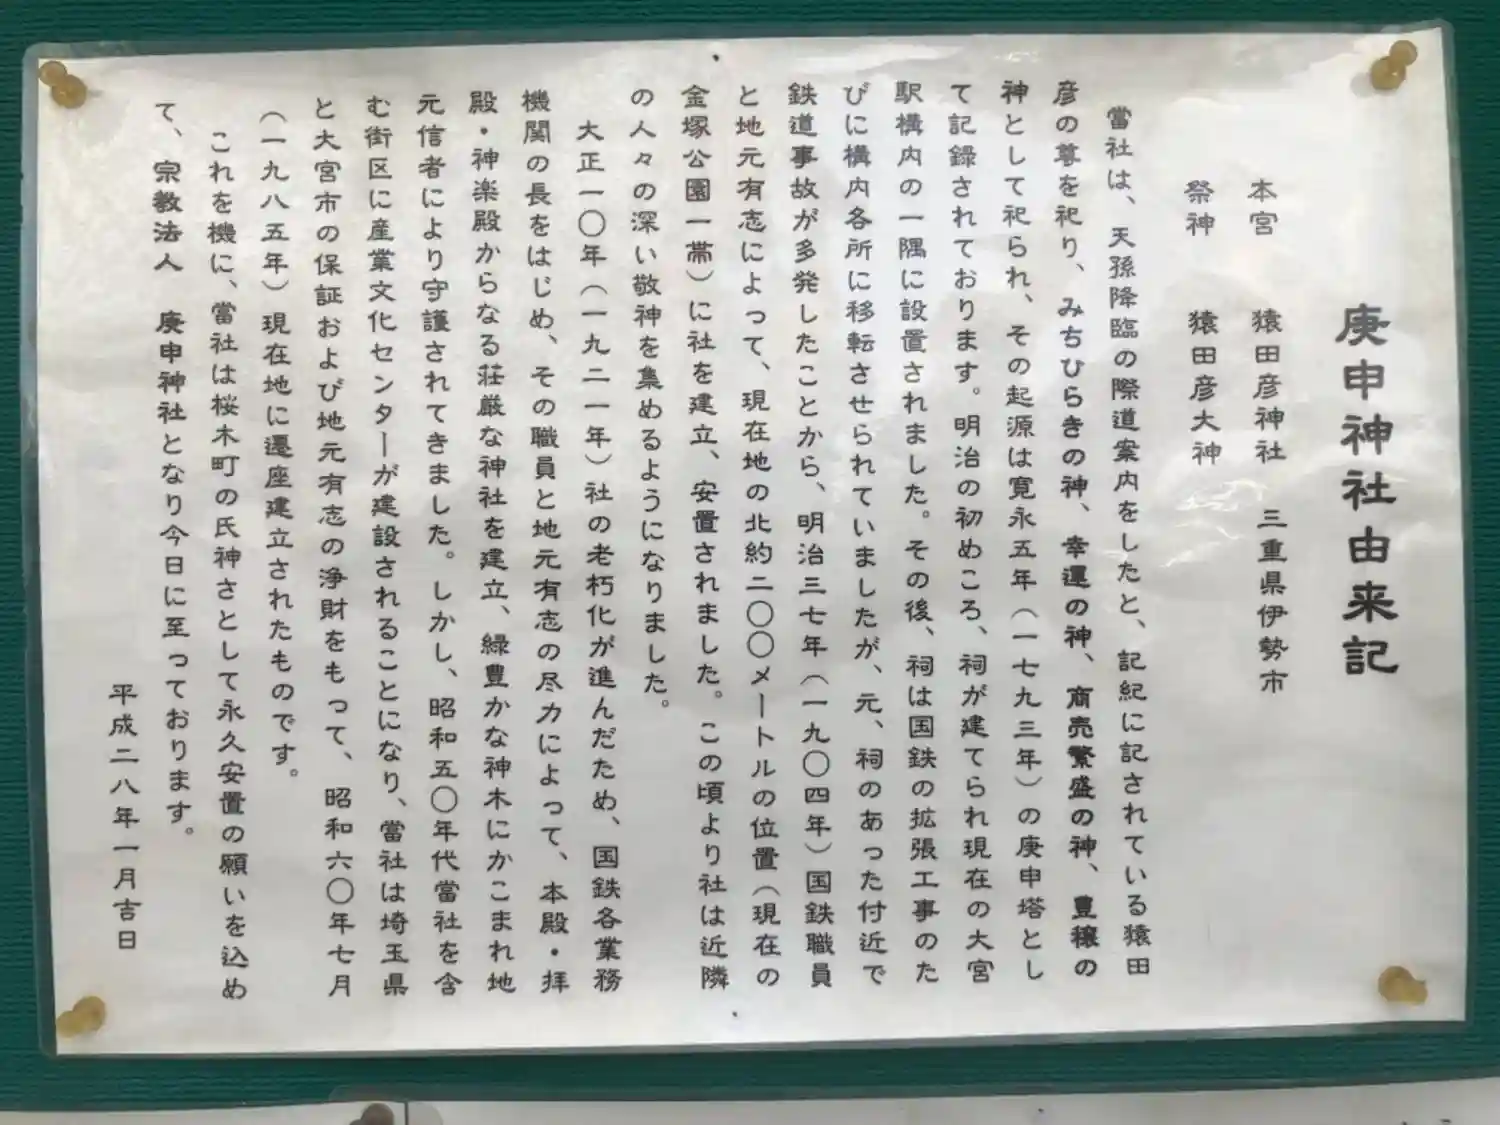 庚申神社由来記
本宮　猿田彦神社　三重県伊勢市
祭神　猿田彦大神
當社は、天孫降臨の際道案内をしたと、記紀に記されている猿田
彦の尊を祀り、みちひらきの神、幸運の神、商売繁盛の神、豊穣の
神として祀られ、その起源は寛永五年（一七九三年）の庚申塔とし
て記録されております。明治の初めころ、祠が建てられ現在の大宮
駅構内の一隅に設置されました。その後、祠は国鉄の拡張工事のた
びに構内各所に移転させられていましたが、元、祠のあった付近で
鉄道事故が多発したことから、明治三七年（一九〇四年）国鉄職員
と地元有志によって、現在地の北約二〇〇メートルの位置（現在の
金塚公園一帯）に社を建立、安置されました。この頃より社は近隣
の人々の深い敬神を集めるようになりました。
大正一〇年（一九二一年）社の老朽化が進んだため、国鉄各業務
機関の長をはじめ、その職員と地元有志の尽力によって、本殿・拝
殿・神楽殿からなる荘厳な神社を建立、緑豊かな神木にかこまれ地
元信者により守護されてきました。しかし、昭和五〇年代當社を含
む街区に産業文化センターが建設されることになり、當社は埼玉県
と大宮市の保証および地元有志の浄財をもって、昭和六〇年七月
（一九八五年）現在地に遷座建立されたものです。
これを機に、當社は桜木町の氏神さとして永久安置の願いを込め
て、宗教法人　庚申神社となり今日に至っております。
平成二八年一月吉日